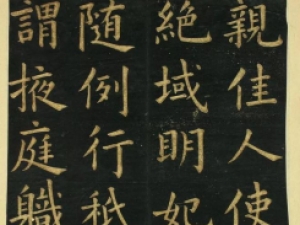 親佳人使
絕域明妃
隨例行秖
謂掖庭職